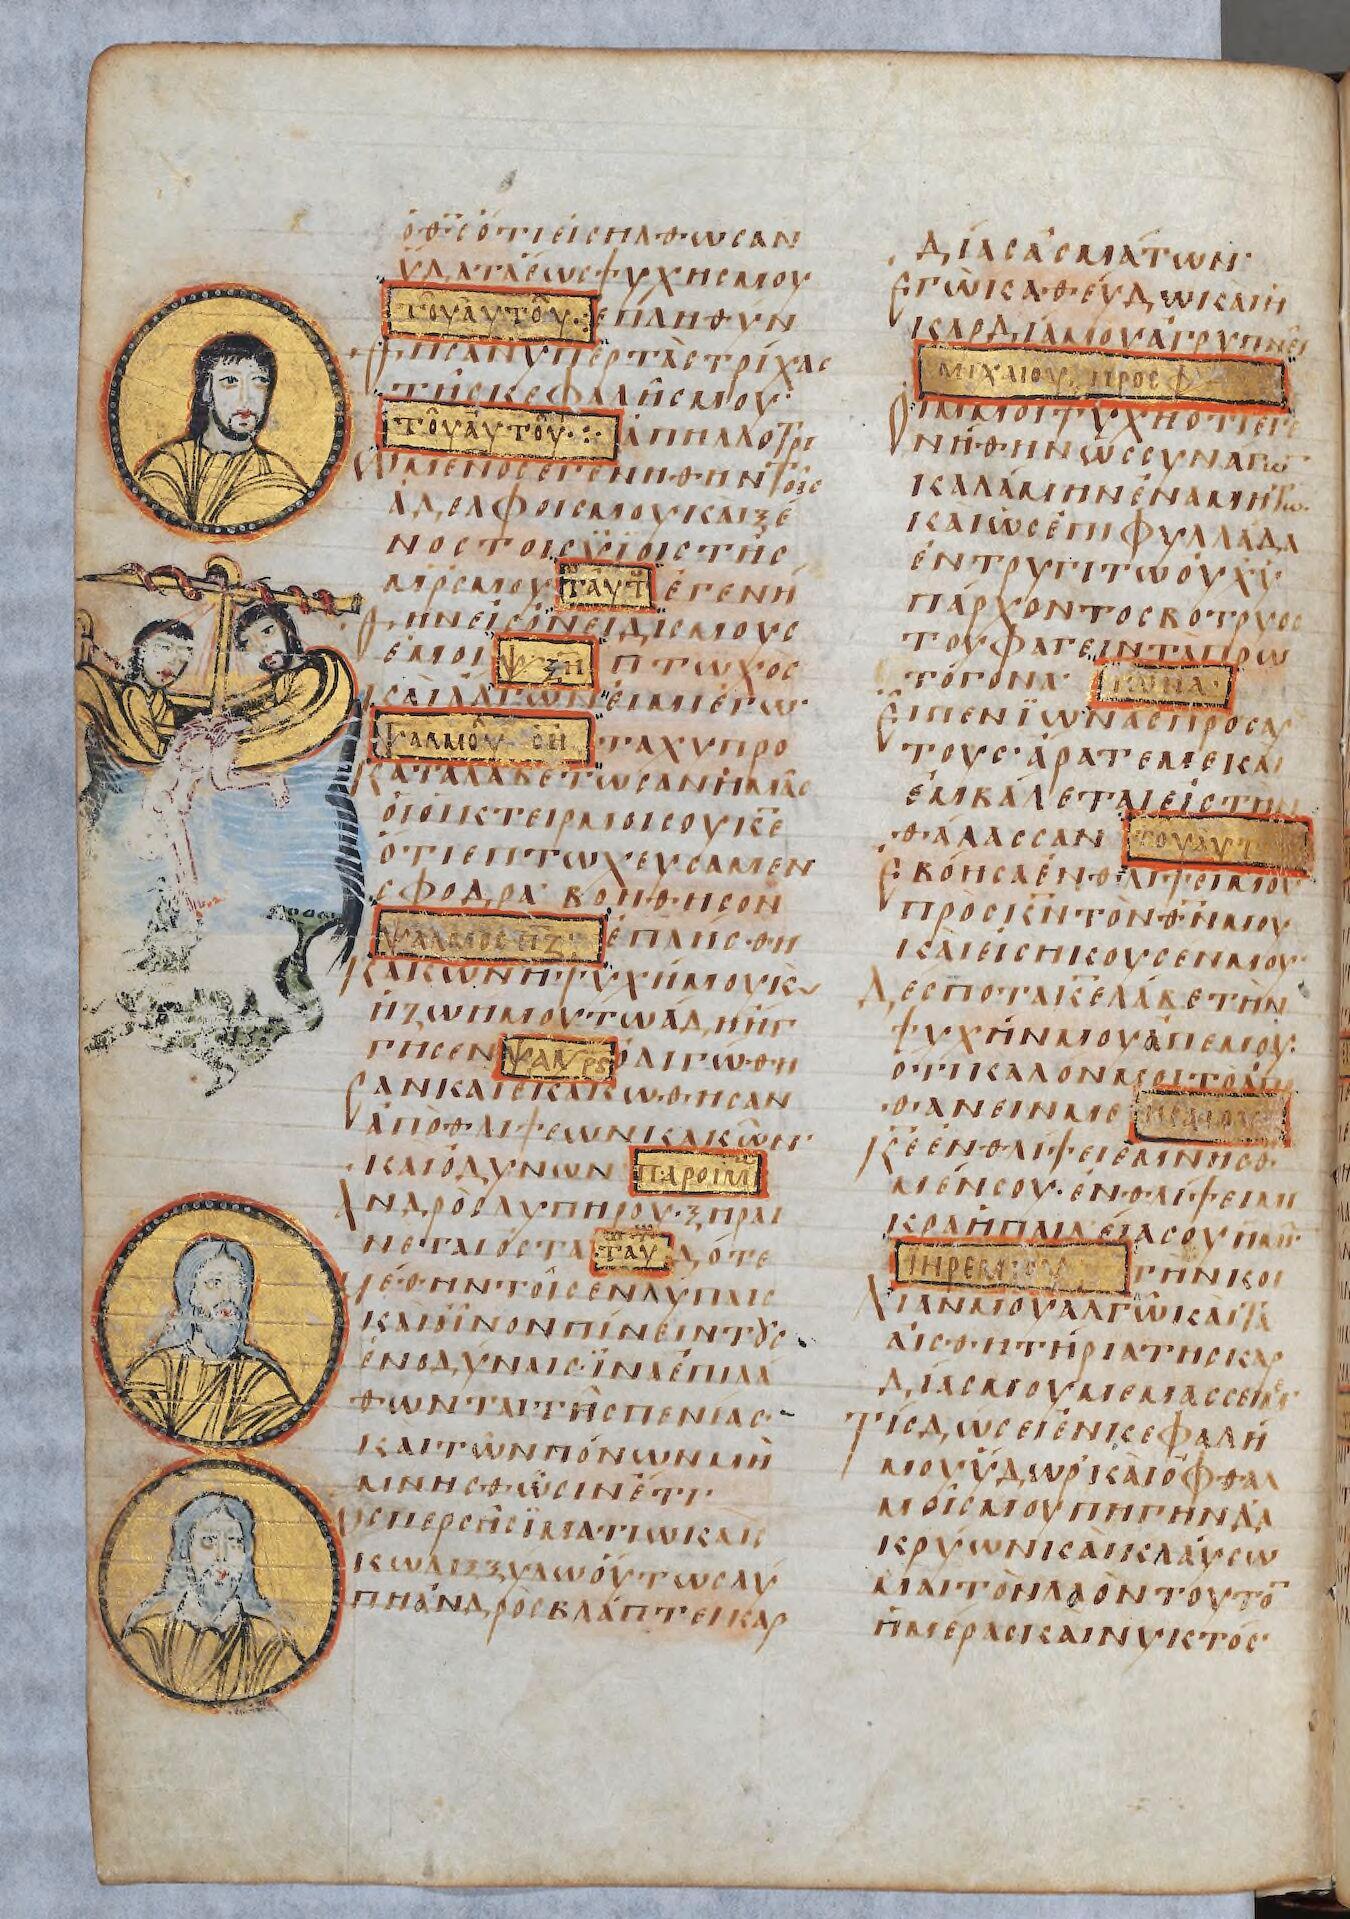 ὁ θ̅ς̅ ὅτι εἰσήλθωσαν
ὕδατα ἕως ψυχῆς μου
τοῦ αὐτοῦ ἐπληθύν
θησαν ὑπὲρ τὰς τρίχας
τῆς κεφαλῆς μου
τοῦ αὐτοῦ ἀπηλλοτρι
ωμένος ἐγενήθην τοῖς
ἀδελφοῖς μου καὶ ξέ
νος τοῖς ϋἱοῖς τῆς
μ̅ρ̅ς μου τ αυτ ἐγενή
θην εἰς ὀνειδισμοὺς
ἐμοί ψ ξη πτωχὸς
καὶ ἀλγῶν εἰμὶ ἐγώ
ψαλμοῦ οη ταχὺ προ
καταλαβέτωσαν ἡμᾶς
οἱ οἰκτειρμοί σου κ̅ε̅
ὅτι ἐπτωχεύσαμεν
σφόδρα βοήθησον
ψαλμος πζ ἐπλήσθη
κακῶν ἡ ψυχή μου κ
ἡ ζωή μου τῷ ἅδῃ ἤγ
γησεν ψαλ ρς ὀλιγώθη
σαν καὶ ἐκακώθησαν
ἀπὸ θλίψεων κακῶν
καὶ ὀδυνῶν παροιμ
ἀνδρὸς λυπηροῦ ξηραί
νεται ὀστᾶ τ αυ δότε
μέθην τοῖς ἐν λύπαις
καὶ οἶνον πίνειν τοῖς
ἐν ὀδύναις ἵνα ἐπιλά
θωνται τῆς πενίας
καὶ τῶν πόνων μὴ
μνησθῶσιν ἔτι
ὥσπερ σὴς ἱματίῳ καὶ
σκώληξ ξύλῳ οὕτως λύ
πη ἀνδρὸς βλάπτει καρ
δίας ἀσμάτων
ἐγὼ καθεύδω καὶ ἡ
καρδία μου ἀγρυπνεῖ
μιχαιου προς
οἴμμοι ψυχὴ ὅτι ἐγε
νήθην ὡς συνάγω
καλάμην ἐν ἀμήτω
καὶ ὡς ἐπιφυλλάδα
ἐν τρυγίτῳ οὐχ ὑ
πάρχοντος βότρυος
τοῦ φαγεῖν τὰ πρω
τόγονα ϊωνα
εἶπεν ϊωνᾶς πρὸς αὐ
τούς ἄρατέ με καὶ
ἐμβάλεται εἰς τὴν
θάλασσαν του αυτου
ἐβόησα ἐν θλίψει μου
πρὸς κ̅ν̅ τὸν θ̅ν̅ μου
καὶ εἰσήκουσέν μου
δέσποτα κ̅ε̅ λάβε τὴν
ψυχήν μου ἀπ ἐμοῦ
ὅτι καλόν μοι τὸ ἀπο
θανεῖν με
κ̅ε̅ ἐν θλίψει ἐμνήσθη
μέν σου ἐν θλίψει μι
κρᾷ ἡ παιδεία σου ἡμῖν
ιηρεμιου τὴν κοι
λίαν μου ἀλγῶ καὶ τὰ
αἰσθητήρια τῆς καρ
δίας μου μεμάσσει με
τίς δώσει ἐν κεφαλῇ
μου ὕδωρ καὶ ὀφθαλ
μοῖς μου πηγὴν δα
κρύων καὶ κλαύσω
μαι τὸν λαὸν τοῦτο
ἡμέρας καὶ νυκτός